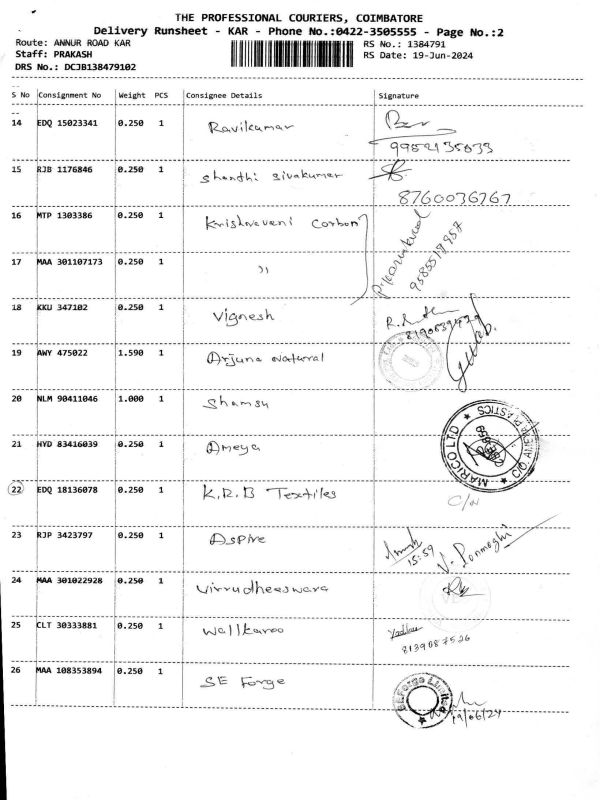 THE PROFESSIONAL COURIERS, COIMBATORE
Delivery Runsheet - KAR - Phone No.:0422-3505555 - Page No.:2
Route: ANNUR ROAD KAR
RS No.: 1384791
Staff: PRAKASH
RS Date: 19-Jun-2024
DRS No.: DCJB138479102
S No Consignment No Weight PCS Consignee Details Signature
14 EDQ 15023341 0.250 1 Ravikumar
9952135033
15 RJB 1176846 0.250 1 Shanthi Sivakumar
8760036767
16 MTP 1303386 0.250 1 Krishnaveni Carbon
9585519957
17 MAA 301107173 0.250 1 ))
18 KKU 347102 0.250 1 Vignesh
19 AWY 475022 1.590 1 Arjuna Natural
20 NLM 90411046 1.000 1 Shamsu
21 HYD 83416039 0.250 1 Ameya
MARICO LTD
C/O PLASTICS
22 EDQ 18136078 0.250 1 K.R.B Textiles
C/N
23 RJP 3423797 0.250 1 Aspire
15:59
24 MAA 301022928 0.250 1 Virrudheeswara
25 CLT 30333881 0.250 1 Wellkaroo
8139087526
26 MAA 108353894 0.250 1 SE Forge
SE Forge Limited
19/06/24